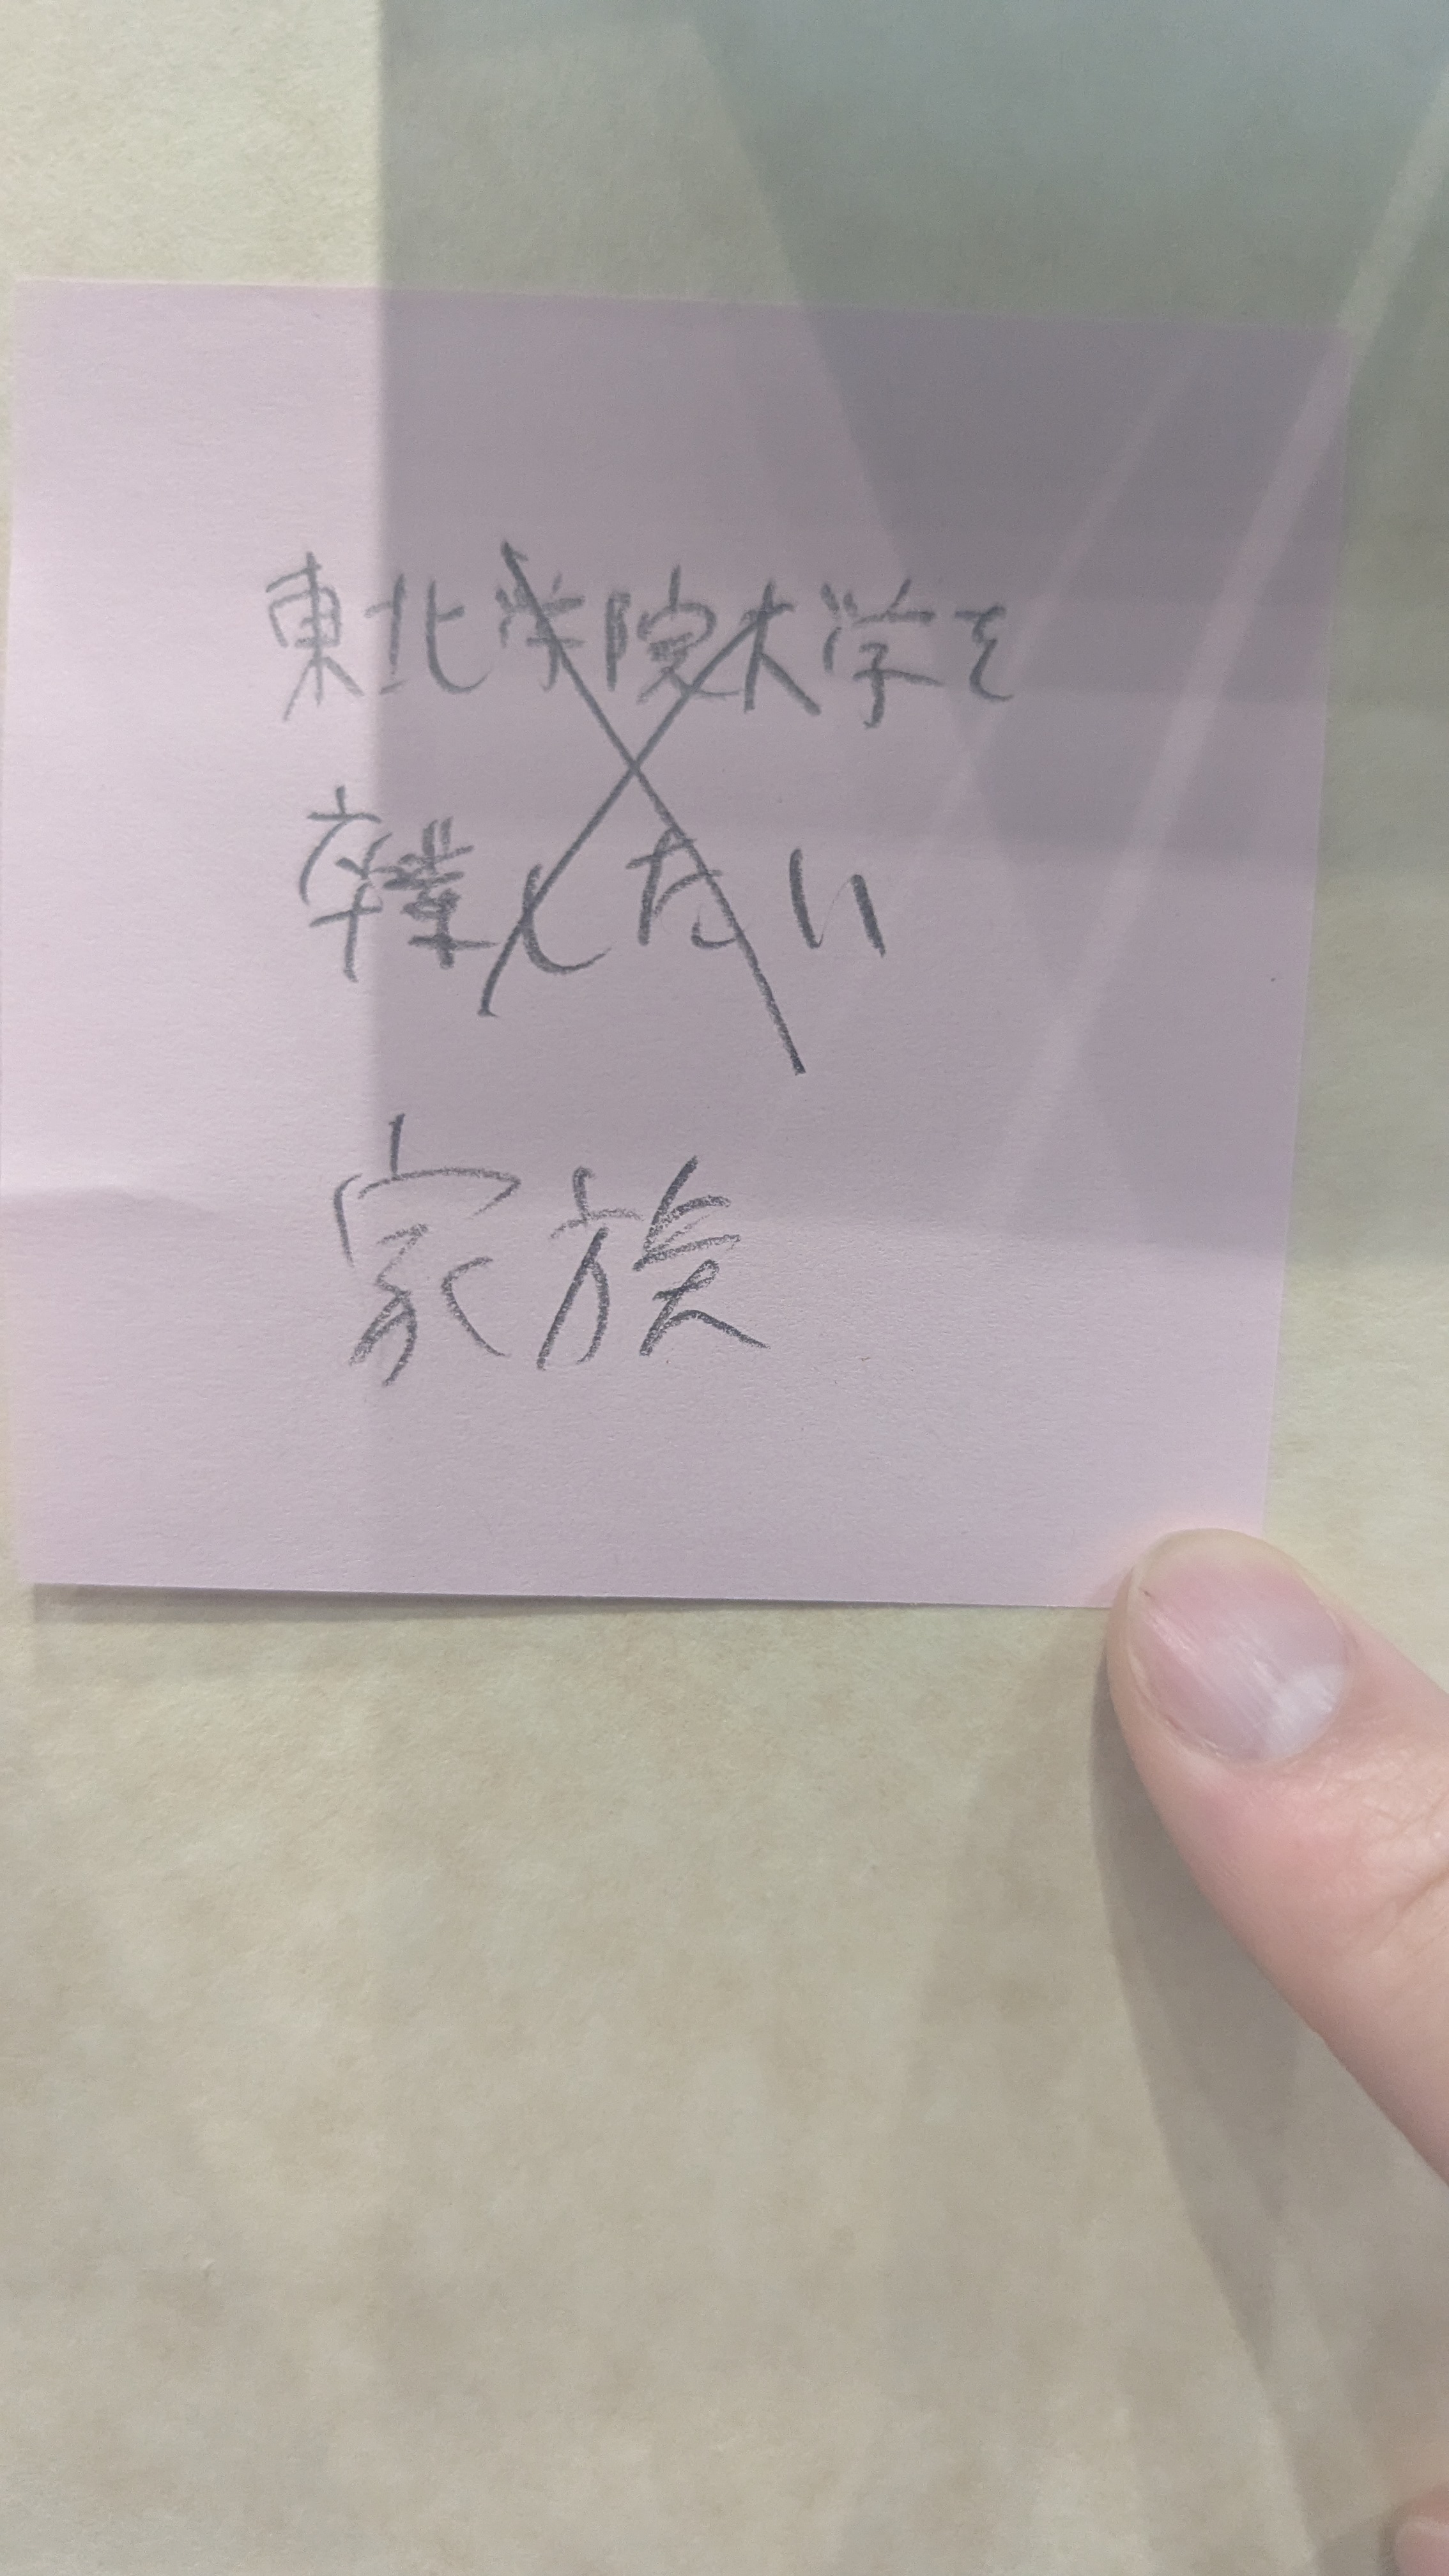 東北学院大学を
卒業したい
家族